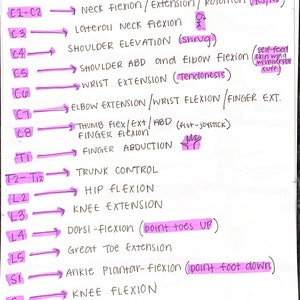 C1-C2 → NECK FLEXION/EXTENSION/ROTATION
C3 → LATERAL NECK FLEXION
C4 → SHOULDER ELEVATION (shrug)
C5 → SHOULDER ABD and elbow flexion (self-feed
C6 → WRIST EXTENSION (Tendonesis)
C7 → ELBOW EXTENSION/WRIST FLEXION/FINGER EXT.
C8 → THUMB FLEX/EXT/ABD (fist-joystick)
FINGER FLEXION
T1 → FINGER ABDUCTION
T2-T12 → TRUNK CONTROL
L2 → HIP FLEXION
L3 → KNEE EXTENSION
L4 → DORSI-FLEXION (point toes UP)
L5 → Great Toe Extension
S1 → Ankle Plantar-flexion (point foot down)
→ KNEE FLEXION